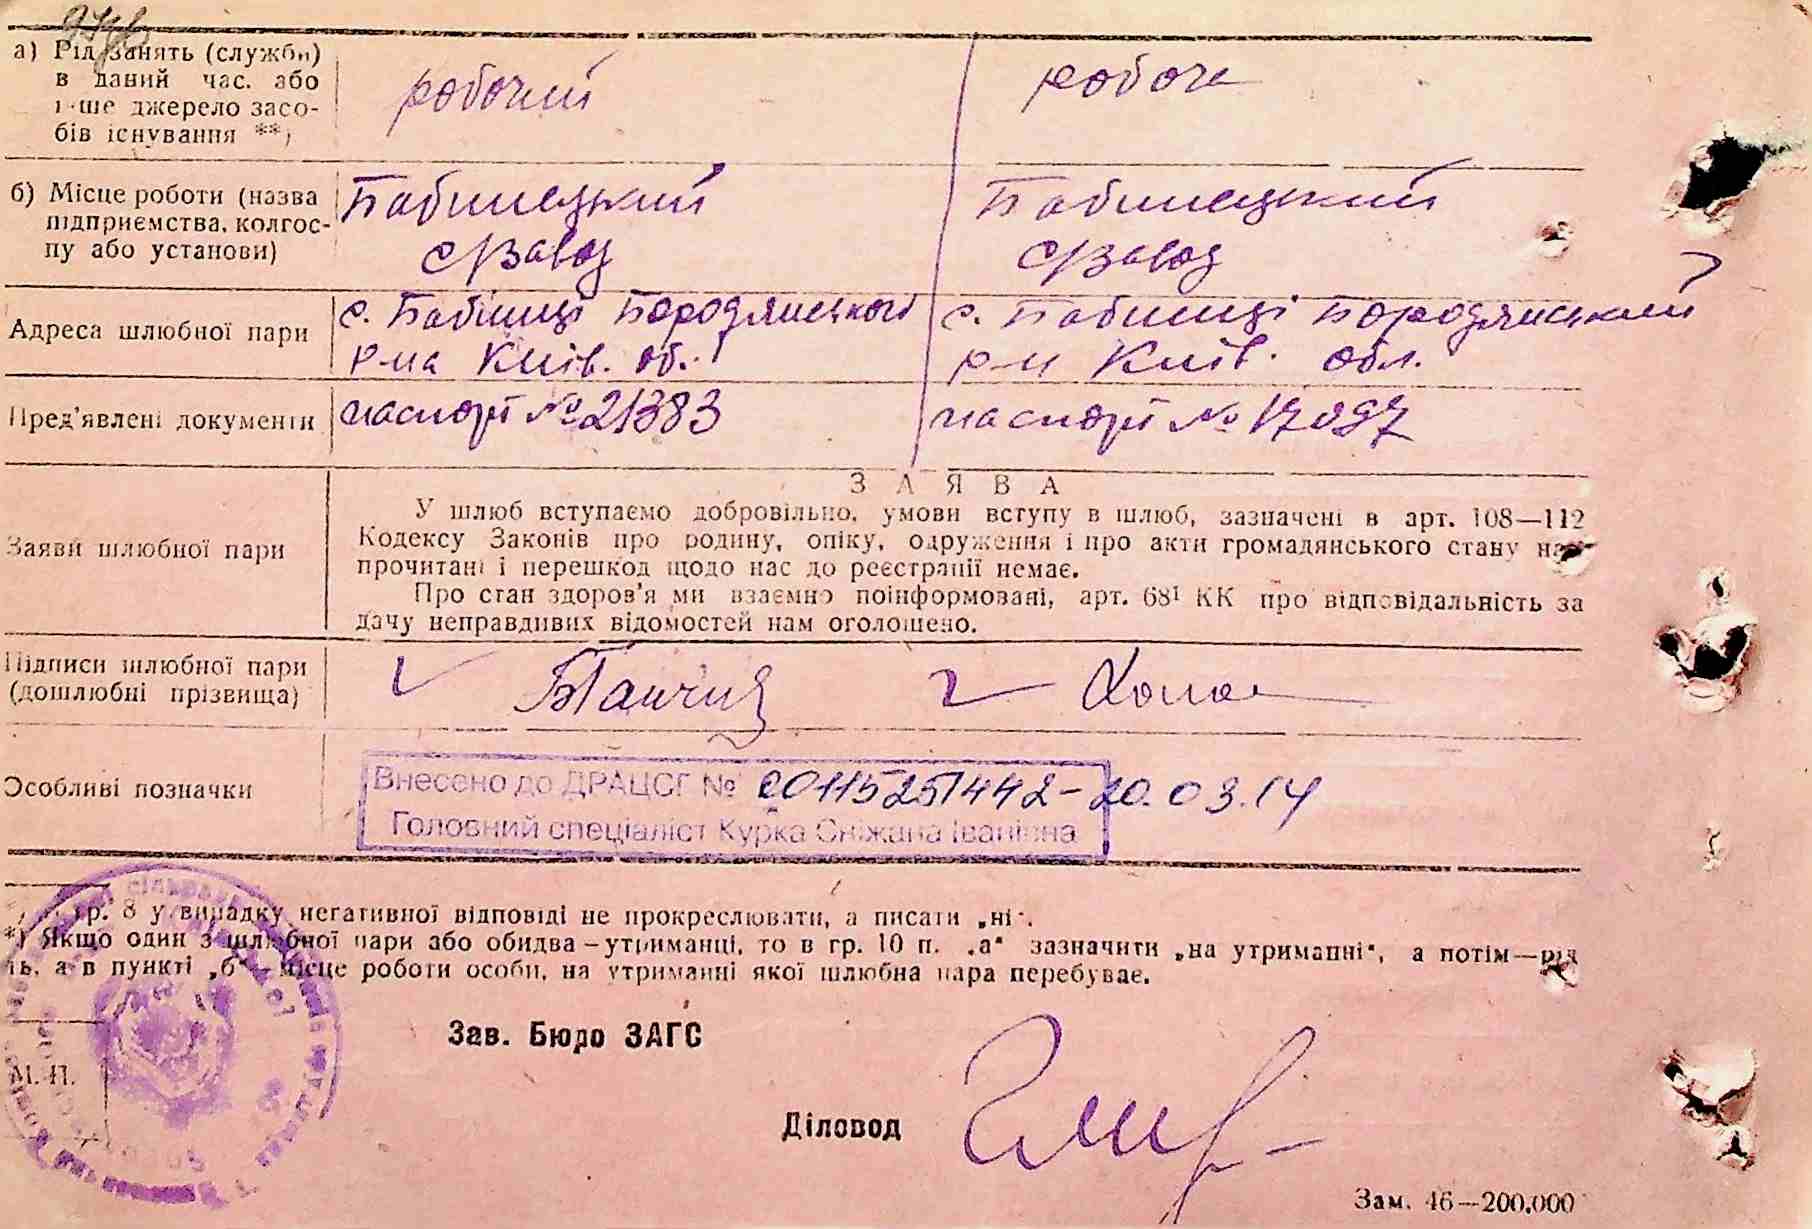 а) Рід занять (служби) робочий робоча
в даний час. або
інше джерело засо-
бів існування **)
б) Місце роботи (назва Бабинецький Бабинецький
підприємства, колгос- с/завод с/завод
пу або установи)
Адреса шлюбної пари с. Бабинці Бородянського с. Бабинці Бородянський
р-на Київ. об. р-н Київ. обл.
Пред'явлені документи паспорт № 21383 паспорт № 17097
З А Я В А
У шлюб вступаємо добровільно, умови вступу в шлюб, зазначені в арт. 108—112
Заяви шлюбної пари Кодексу Законів про родину, опіку, одруження і про акти громадянського стану нам
прочитані і перешкод щодо нас до реєстрації немає.
Про стан здоров'я ми взаємно поінформовані, арт. 68¹ КК про відповідальність за
дачу неправдивих відомостей нам оголошено.
Підписи шлюбної пари
(дошлюбні прізвища)
Особливі позначки Внесено до ДРАЦСГ № 00115251442 - 20.03.14
Головний спеціаліст Курка Сніжана Іванівна
гр. 8 у випадку негативної відповіді не прокреслювати, а писати „ні".
*) Якщо один з шлюбної пари або обидва – утриманці, то в гр. 10 п. „а" зазначити „на утриманні", а потім—рід
ь, а в пункті „б" - місце роботи особи, на утриманні якої шлюбна пара перебуває.
Зав. Бюро ЗАГС
М. П.
Діловод
Зам. 46—200.000